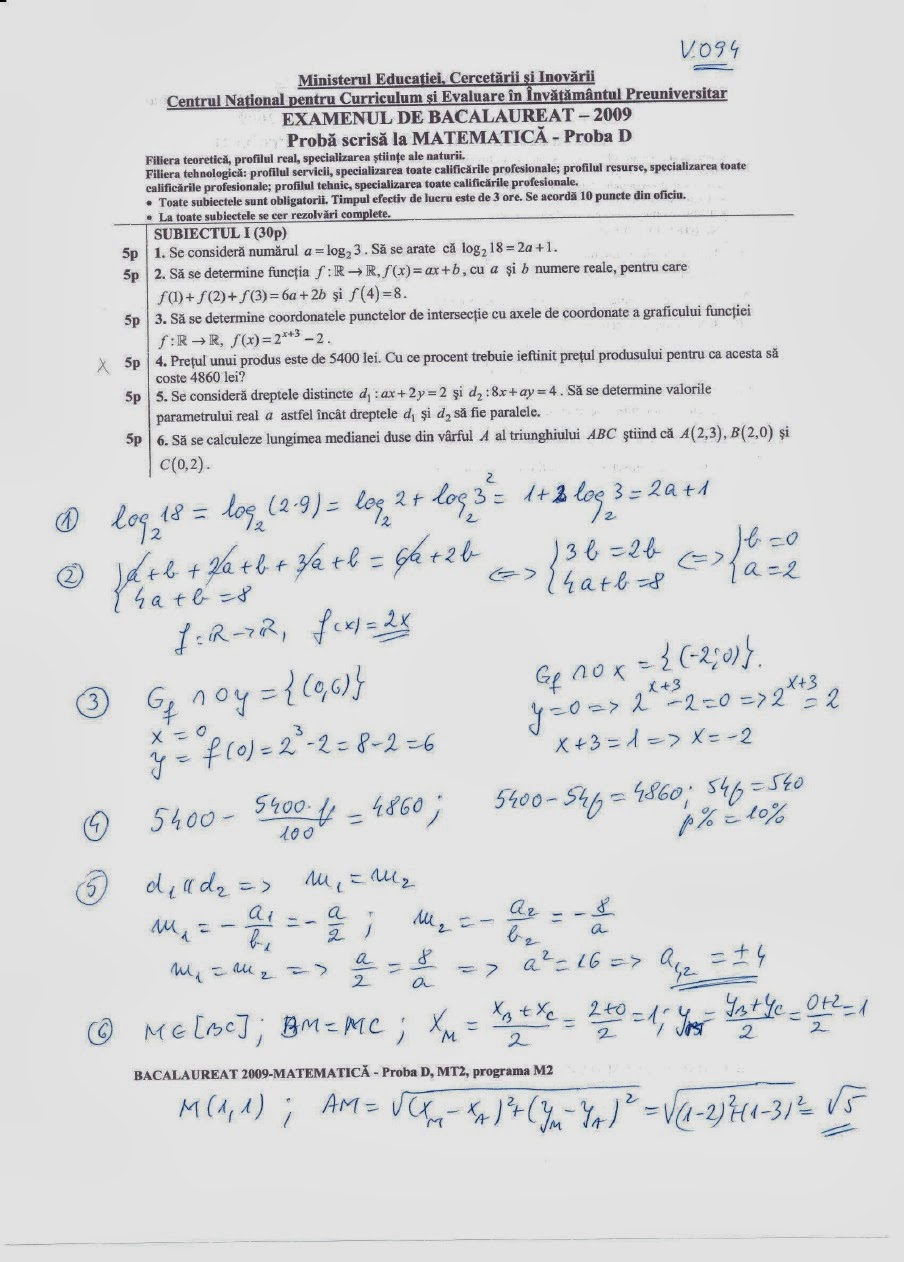 V.094
Ministerul Educaţiei, Cercetării şi Inovării
Centrul Naţional pentru Curriculum şi Evaluare în Învăţământul Preuniversitar
EXAMENUL DE BACALAUREAT – 2009
Probă scrisă la MATEMATICĂ - Proba D
Filiera teoretică, profilul real, specializarea ştiinţe ale naturii.
Filiera tehnologică: profilul servicii, specializarea toate calificările profesionale; profilul resurse, specializarea toate
calificările profesionale; profilul tehnic, specializarea toate calificările profesionale.
• Toate subiectele sunt obligatorii. Timpul efectiv de lucru este de 3 ore. Se acordă 10 puncte din oficiu.
• La toate subiectele se cer rezolvări complete.
SUBIECTUL I (30p)
5p 1. Se consideră numărul a = log₂ 3 . Să se arate că log₂ 18 = 2a + 1.
5p 2. Să se determine funcţia f : ℝ → ℝ, f(x) = ax + b , cu a şi b numere reale, pentru care
f(1) + f(2) + f(3) = 6a + 2b şi f(4) = 8.
5p 3. Să se determine coordonatele punctelor de intersecţie cu axele de coordonate a graficului funcţiei
f : ℝ → ℝ, f(x) = 2^(x+3) − 2 .
X 5p 4. Preţul unui produs este de 5400 lei. Cu ce procent trebuie ieftinit preţul produsului pentru ca acesta să
coste 4860 lei?
5p 5. Se consideră dreptele distincte d₁ : ax + 2y = 2 şi d₂ : 8x + ay = 4 . Să se determine valorile
parametrului real a astfel încât dreptele d₁ şi d₂ să fie paralele.
5p 6. Să se calculeze lungimea medianei duse din vârful A al triunghiului ABC ştiind că A(2,3), B(2,0) şi
C(0,2).
① log₂ 18 = log₂ (2·9) = log₂ 2 + log₂ 3² = 1 + 2 log₂ 3 = 2a + 1
② { a + b + 2a + b + 3a + b = 6a + 2b <=> { 3b = 2b <=> { b = 0
4a + b = 8 4a + b = 8 a = 2
f: ℝ → ℝ, f(x) = 2x
③ Gf ∩ Oy = {(0,6)} Gf ∩ Ox = {(-2;0)}.
x = 0 y = 0 => 2^(x+3) - 2 = 0 => 2^(x+3) = 2
y = f(0) = 2³ - 2 = 8 - 2 = 6 x + 3 = 1 => x = -2
④ 5400 - 5400·p/100 = 4860; 5400 - 54p = 4860; 54p = 540
p% = 10%
⑤ d₁ ∥ d₂ => m₁ = m₂
m₁ = - a₁/b₁ = - a/2 ; m₂ = - a₂/b₂ = - 8/a
m₁ = m₂ => a/2 = 8/a => a² = 16 => a₁,₂ = ± 4
⑥ M ∈ [BC] ; BM = MC ; x_M = (x_B + x_C)/2 = (2+0)/2 = 1; y_M = (y_B + y_C)/2 = (0+2)/2 = 1
BACALAUREAT 2009-MATEMATICĂ - Proba D, MT2, programa M2
M(1,1) ; AM = √((x_M - x_A)² + (y_M - y_A)²) = √((1-2)² + (1-3)²) = √5